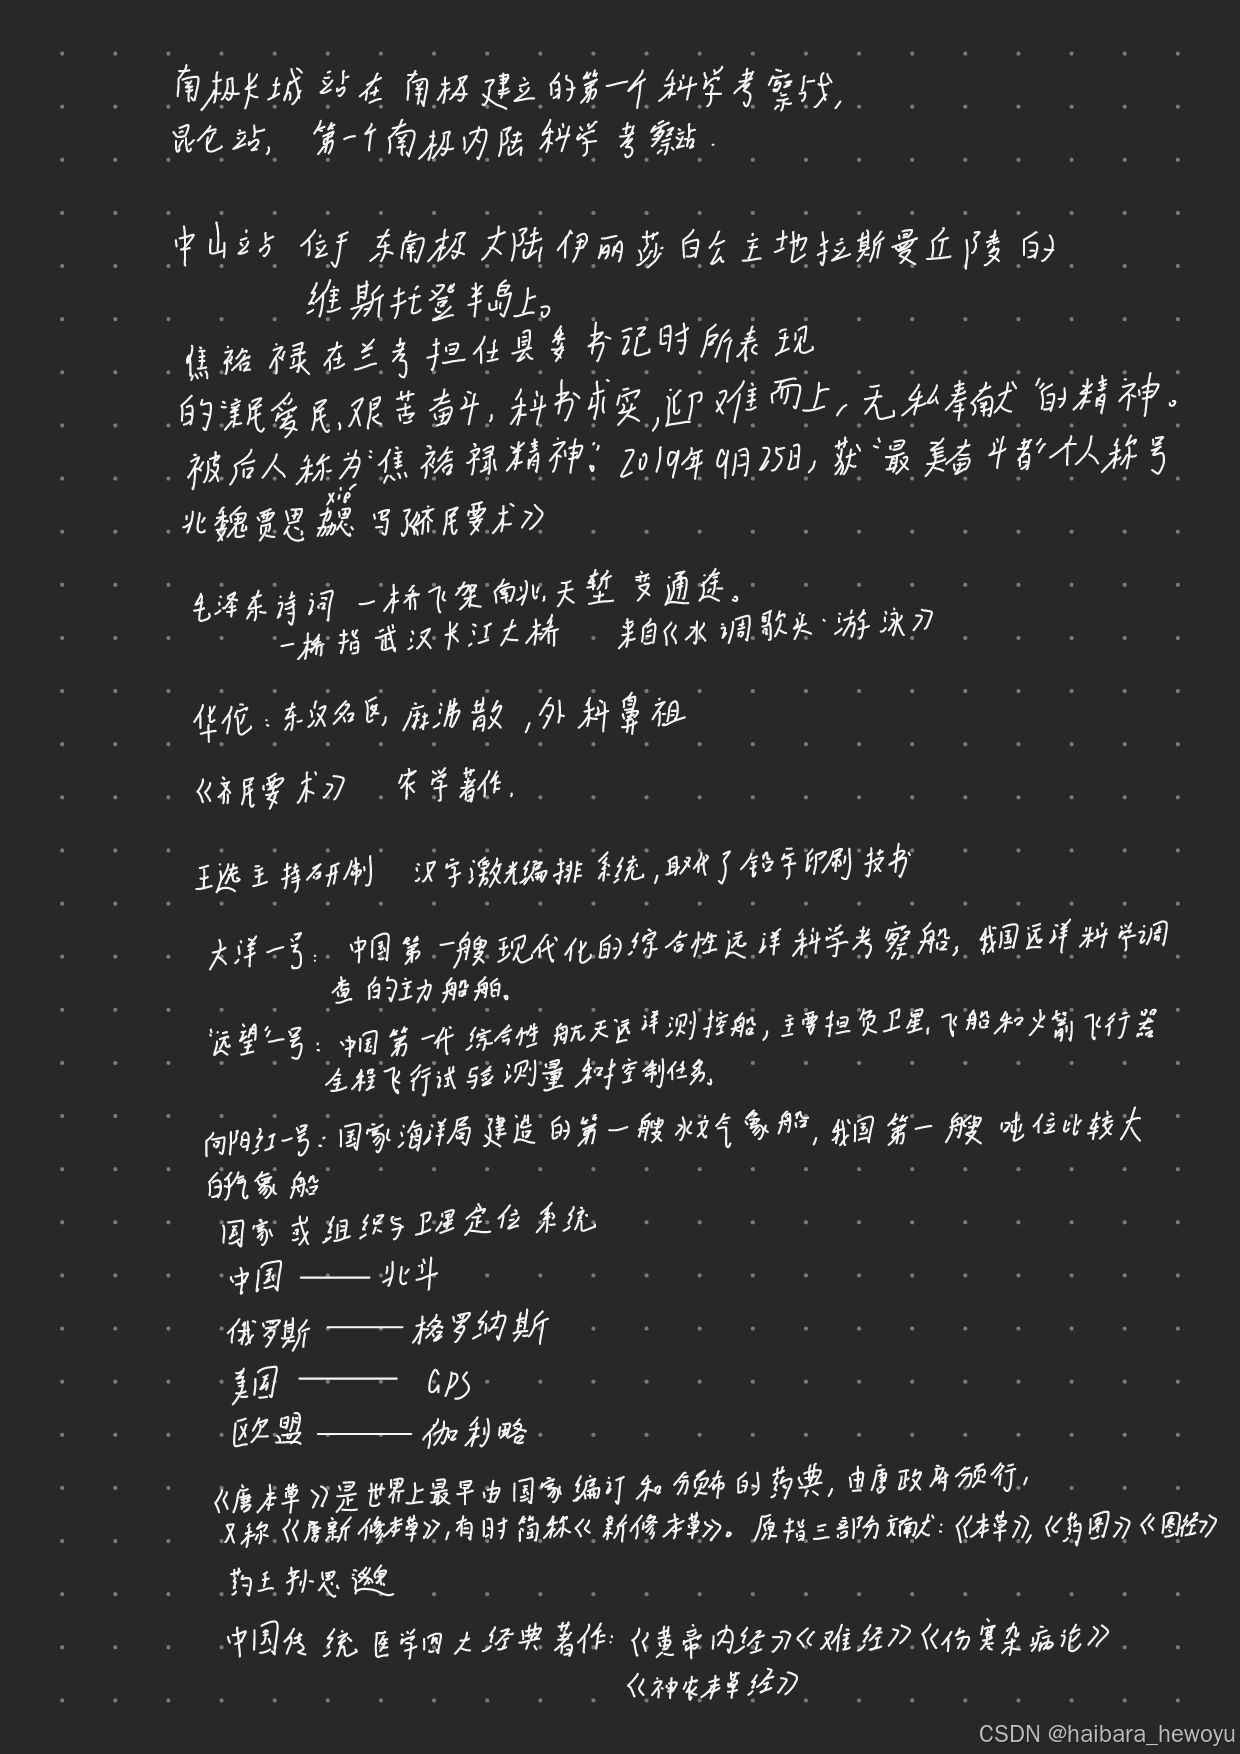 南极长城站在南极建立的第一个科学考察站,
昆仑站, 第一个南极内陆科学考察站.
中山站 位于东南极大陆伊丽莎白公主地拉斯曼丘陵的
维斯托登半岛上。
焦裕禄在兰考担任县委书记时所表现
的"亲民爱民,艰苦奋斗,科学求实,迎难而上,无私奉献"的精神。
被后人称为"焦裕禄精神". 2019年9月25日,获"最美奋斗者"个人称号
xié
北魏贾思勰写了《齐民要术》
毛泽东诗词 一桥飞架南北,天堑变通途。
一桥指武汉长江大桥 来自《水调歌头·游泳》
华佗:东汉名医,麻沸散,外科鼻祖
《齐民要术》 农学著作.
王选主持研制 汉字激光编排系统,取代了铅字印刷技术
大洋一号: 中国第一艘现代化的综合性远洋科学考察船,我国远洋科学调
查的主力船舶。
"远望"一号: 中国第一代综合性航天远洋测控船,主要担负卫星、飞船和火箭飞行器
全程飞行试验测量和控制任务。
向阳红一号:国家海洋局建造的第一艘水文气象船,我国第一艘吨位比较大
的气象船
国家或组织与卫星定位系统
中国 —— 北斗
俄罗斯 —— 格罗纳斯
美国 —— GPS
欧盟 —— 伽利略
《唐本草》是世界上最早由国家编订和颁布的药典,由唐政府颁行,
又称《唐新修本草》,有时简称《新修本草》。原指三部分文献:《本草》,《药图》《图经》
药王孙思邈
中国传统医学四大经典著作:《黄帝内经》《难经》《伤寒杂病论》
《神农本草经》
CSDN @haibara_hewoyu